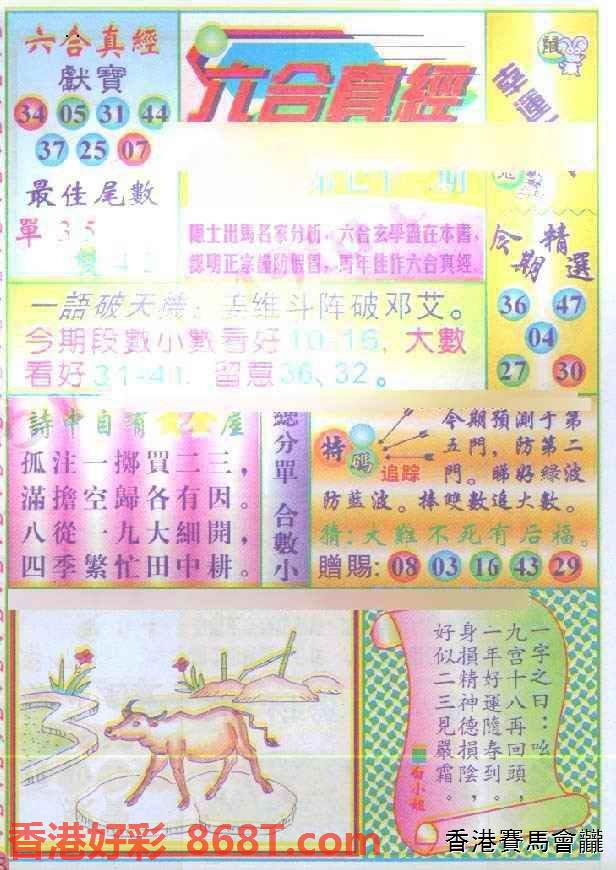 六合真經
獻寶
34 05 31 44
37 25 07
最佳尾數
單 3 5
六合真經
鼠
隱士出馬名家分析，六合玄學靈在本書，
鄭明正宗謹防假冒，馬年佳作六合真經
今期精選
36 47
04
27 30
一語破天機：姜维斗阵破邓艾。
今期段數小數看好10-15，大數
看好31-41，留意36、32。
詩中自有
孤注一擲買二三，
滿擔空歸各有因。
八從一九大細開，
四季繁忙田中耕。
總分單 合數小
特碼
追踪
今期預測于第
五門，防第二
門。睇好綠波
防藍波。捧雙數追大數。
猜：大難不死有后福。
贈賜：08 03 16 43 29
一字之曰：吆
九宫十八再回頭，
一年好運隨春到。
身損精神德損陰，
好似二三見嚴霜。
白小姐
香港好彩 868T.com
香港賽馬會